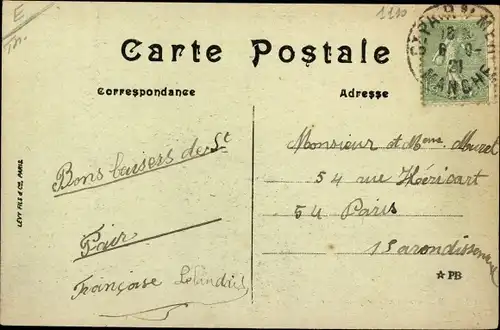 E
Th.
1110
Carte Postale
Correspondance
Adresse
ST PAIR S/ MER
18
6 9-
21
MANCHE
Bons baisers de St
Pair
Françoise
Monsieur et Mme Muzel
54 rue Héricart
54 Paris
15 arondissement
LÉVY FILS & Cie, PARIS
☆ PB